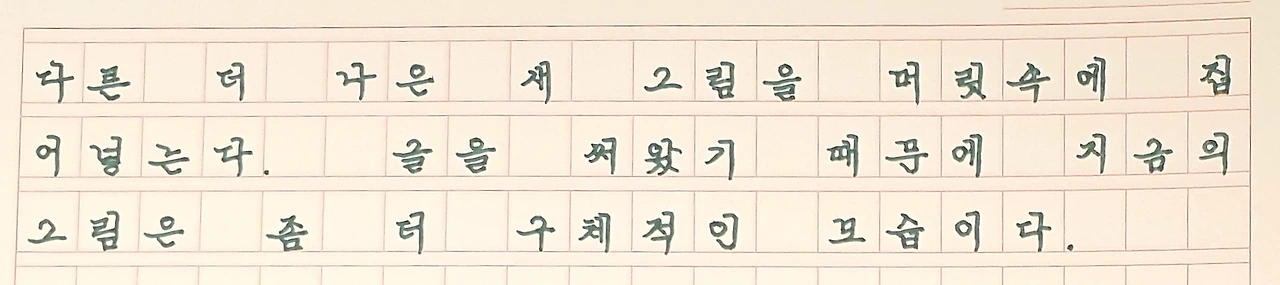 다른 더 나은 새 그림을 머릿속에 집
어넣는다. 글을 써왔기 때문에 지금의
그림은 좀 더 구체적인 모습이다.